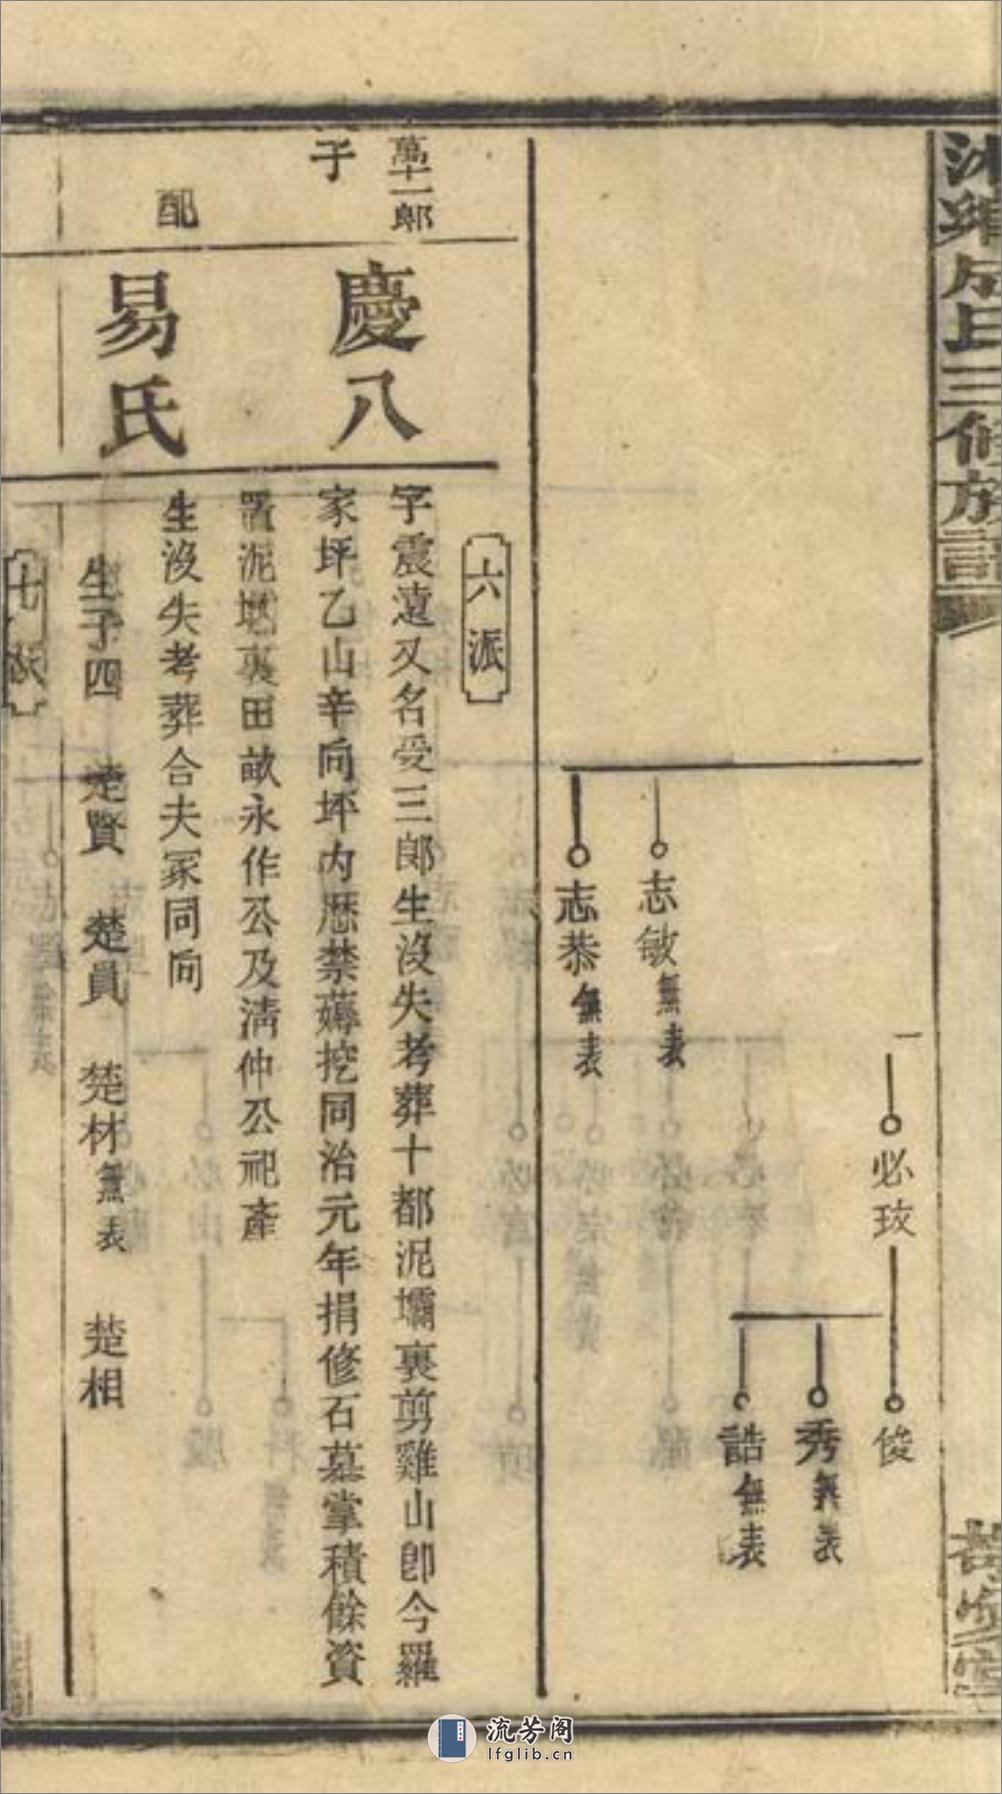 氏三修族譜
必玟
俊
秀無表
誥無表
志敏無表
志恭無表
六派
萬十一郎
子
慶八
字震遠又名受三郎生沒失考葬十都泥壩裏剪雞山即今羅
家坪乙山辛向坪內歷禁薅挖同治元年捐修石墓掌積餘資
置泥壩裏田畝永作公及淸仲公祀產
配
易氏
生沒失考葬合夫冢同向
生子四 楚賢 楚員 楚材無表 楚相
七派
流芳阁
lfglib.cn